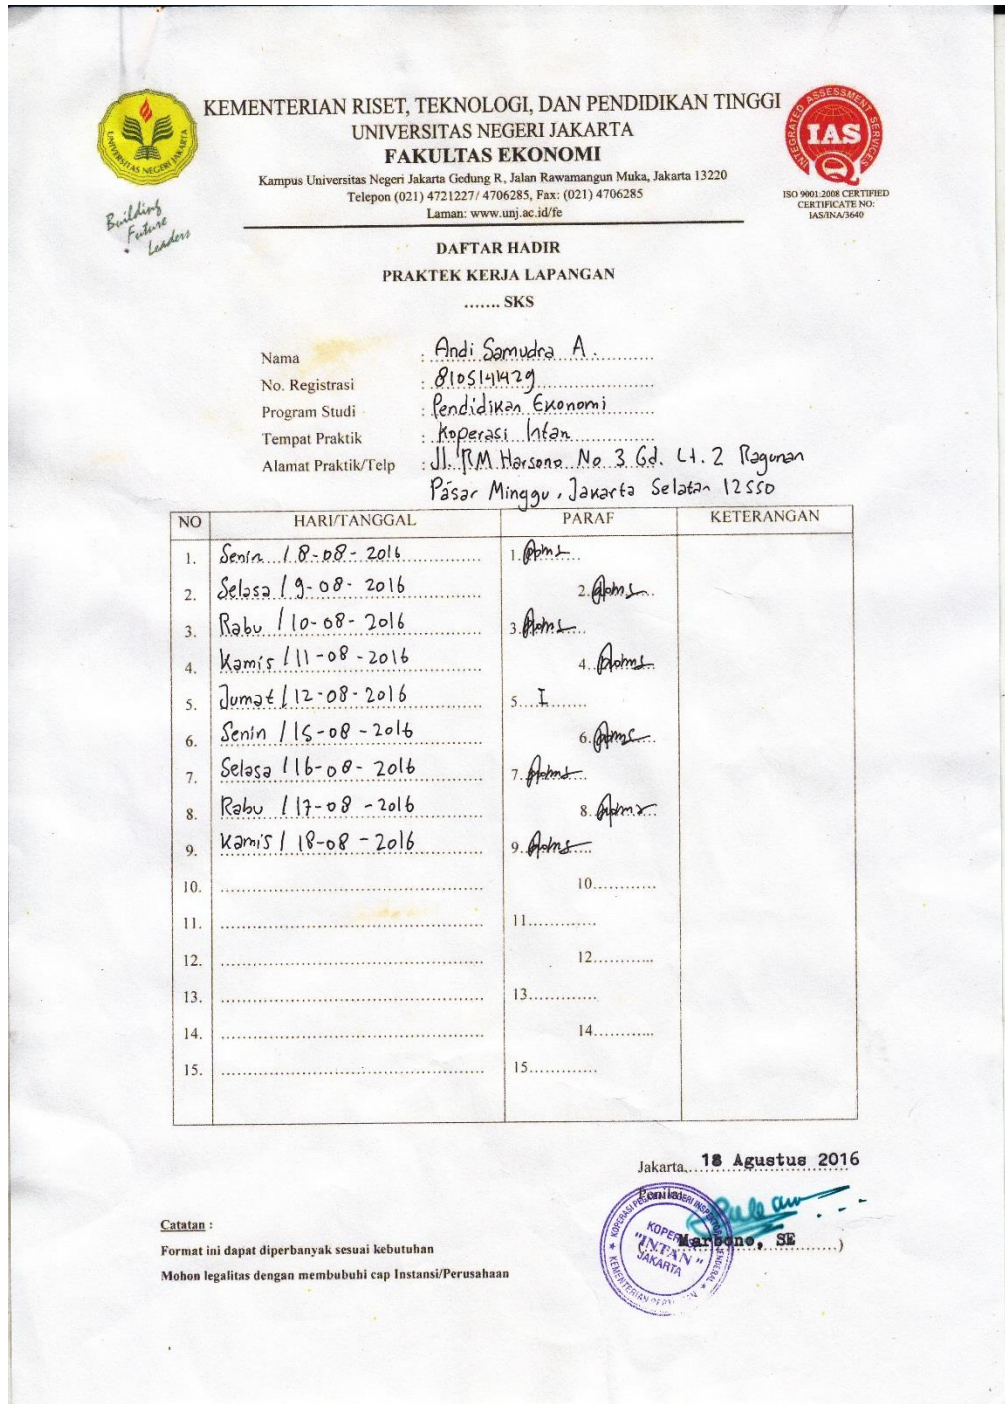 KEMENTERIAN RISET, TEKNOLOGI, DAN PENDIDIKAN TINGGI
UNIVERSITAS NEGERI JAKARTA
FAKULTAS EKONOMI
Kampus Universitas Negeri Jakarta Gedung R, Jalan Rawamangun Muka, Jakarta 13220
Telepon (021) 4721227/ 4706285, Fax: (021) 4706285
Laman: www.unj.ac.id/fe
UNIVERSITAS NEGERI JAKARTA
Building
Future
Leaders
INTEGRATED ASSESSMENT SERVICES
IAS
ISO 9001:2008 CERTIFIED
CERTIFICATE NO:
IAS/INA/3640
DAFTAR HADIR
PRAKTEK KERJA LAPANGAN
....... SKS
Nama : Andi Samudra A.
No. Registrasi : 8105141429
Program Studi : Pendidikan Ekonomi
Tempat Praktik : Koperasi Intan
Alamat Praktik/Telp : Jl. RM Harsono No 3 Gd. Lt. 2 Ragunan
Pasar Minggu, Jakarta Selatan 12550
NO HARI/TANGGAL PARAF KETERANGAN
1. Senin / 8-08-2016 1.
2. Selasa / 9-08-2016 2.
3. Rabu / 10-08-2016 3.
4. Kamis / 11-08-2016 4.
5. Jumat / 12-08-2016 5. I
6. Senin / 15-08-2016 6.
7. Selasa / 16-08-2016 7.
8. Rabu / 17-08-2016 8.
9. Kamis / 18-08-2016 9.
10. 10.
11. 11.
12. 12.
13. 13.
14. 14.
15. 15.
Jakarta, 18 Agustus 2016
Penilai
KOPERASI
"INTAN"
JAKARTA
(Marbono, SE)
Catatan :
Format ini dapat diperbanyak sesuai kebutuhan
Mohon legalitas dengan membubuhi cap Instansi/Perusahaan